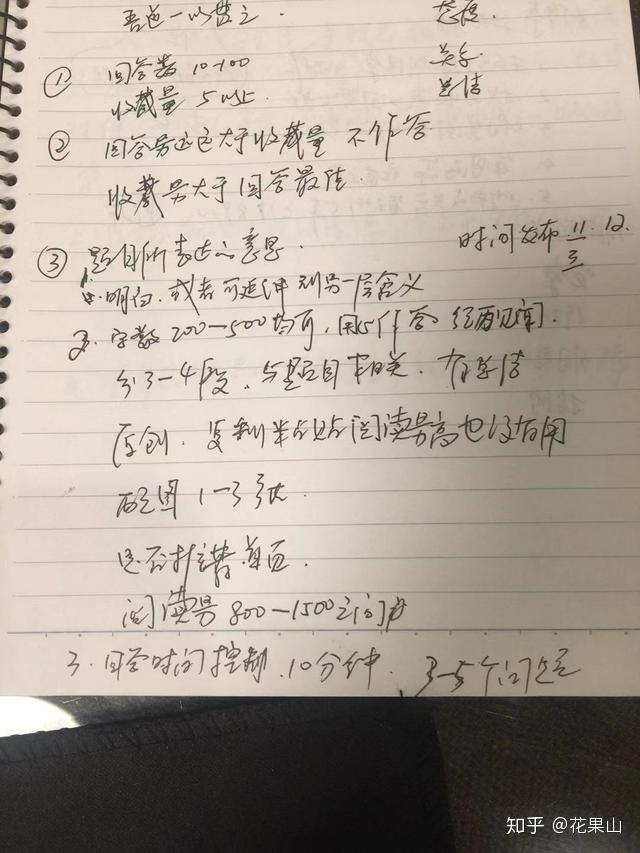 吾道一以贯之. 态度.
① 回答数 10-100 关系
收藏量 5以上 道情
② 回答号远远大于收藏量 不作答
收藏号大于回答最佳.
③ 题目所表达的意思. 时间发布 11.12.
1. 明白. 或者可延伸到另一层含义 三
2. 字数 200—500均可, 用心作答 经历见闻.
分3-4段, 与题目相关. 有真情
原创. 复制粘贴阅读号高也没有用
配图 1-3张.
是否推荐首页
阅读号 800-1500之间
3. 回答时间控制. 10分钟. 3-5个问题
知乎 @花果山